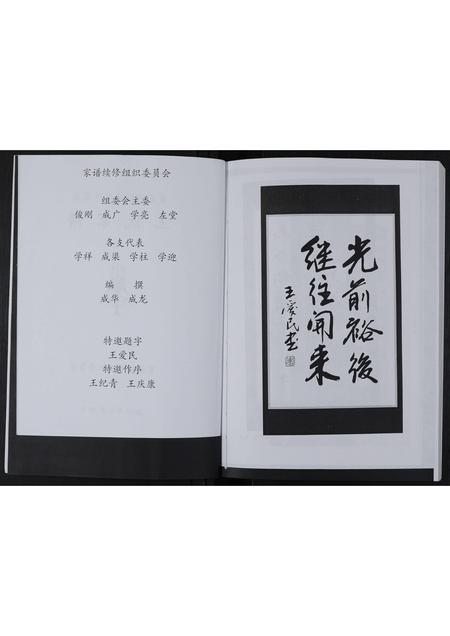 家谱续修组织委员会
组委会主委
俊刚 成广 学亮 左堂
各支代表
学祥 成渠 学柱 学迎
编 撰
成华 成龙
特邀题字
王爱民
特邀作序
王纪青 王庆康
光前裕後
继往开来
王爱民书